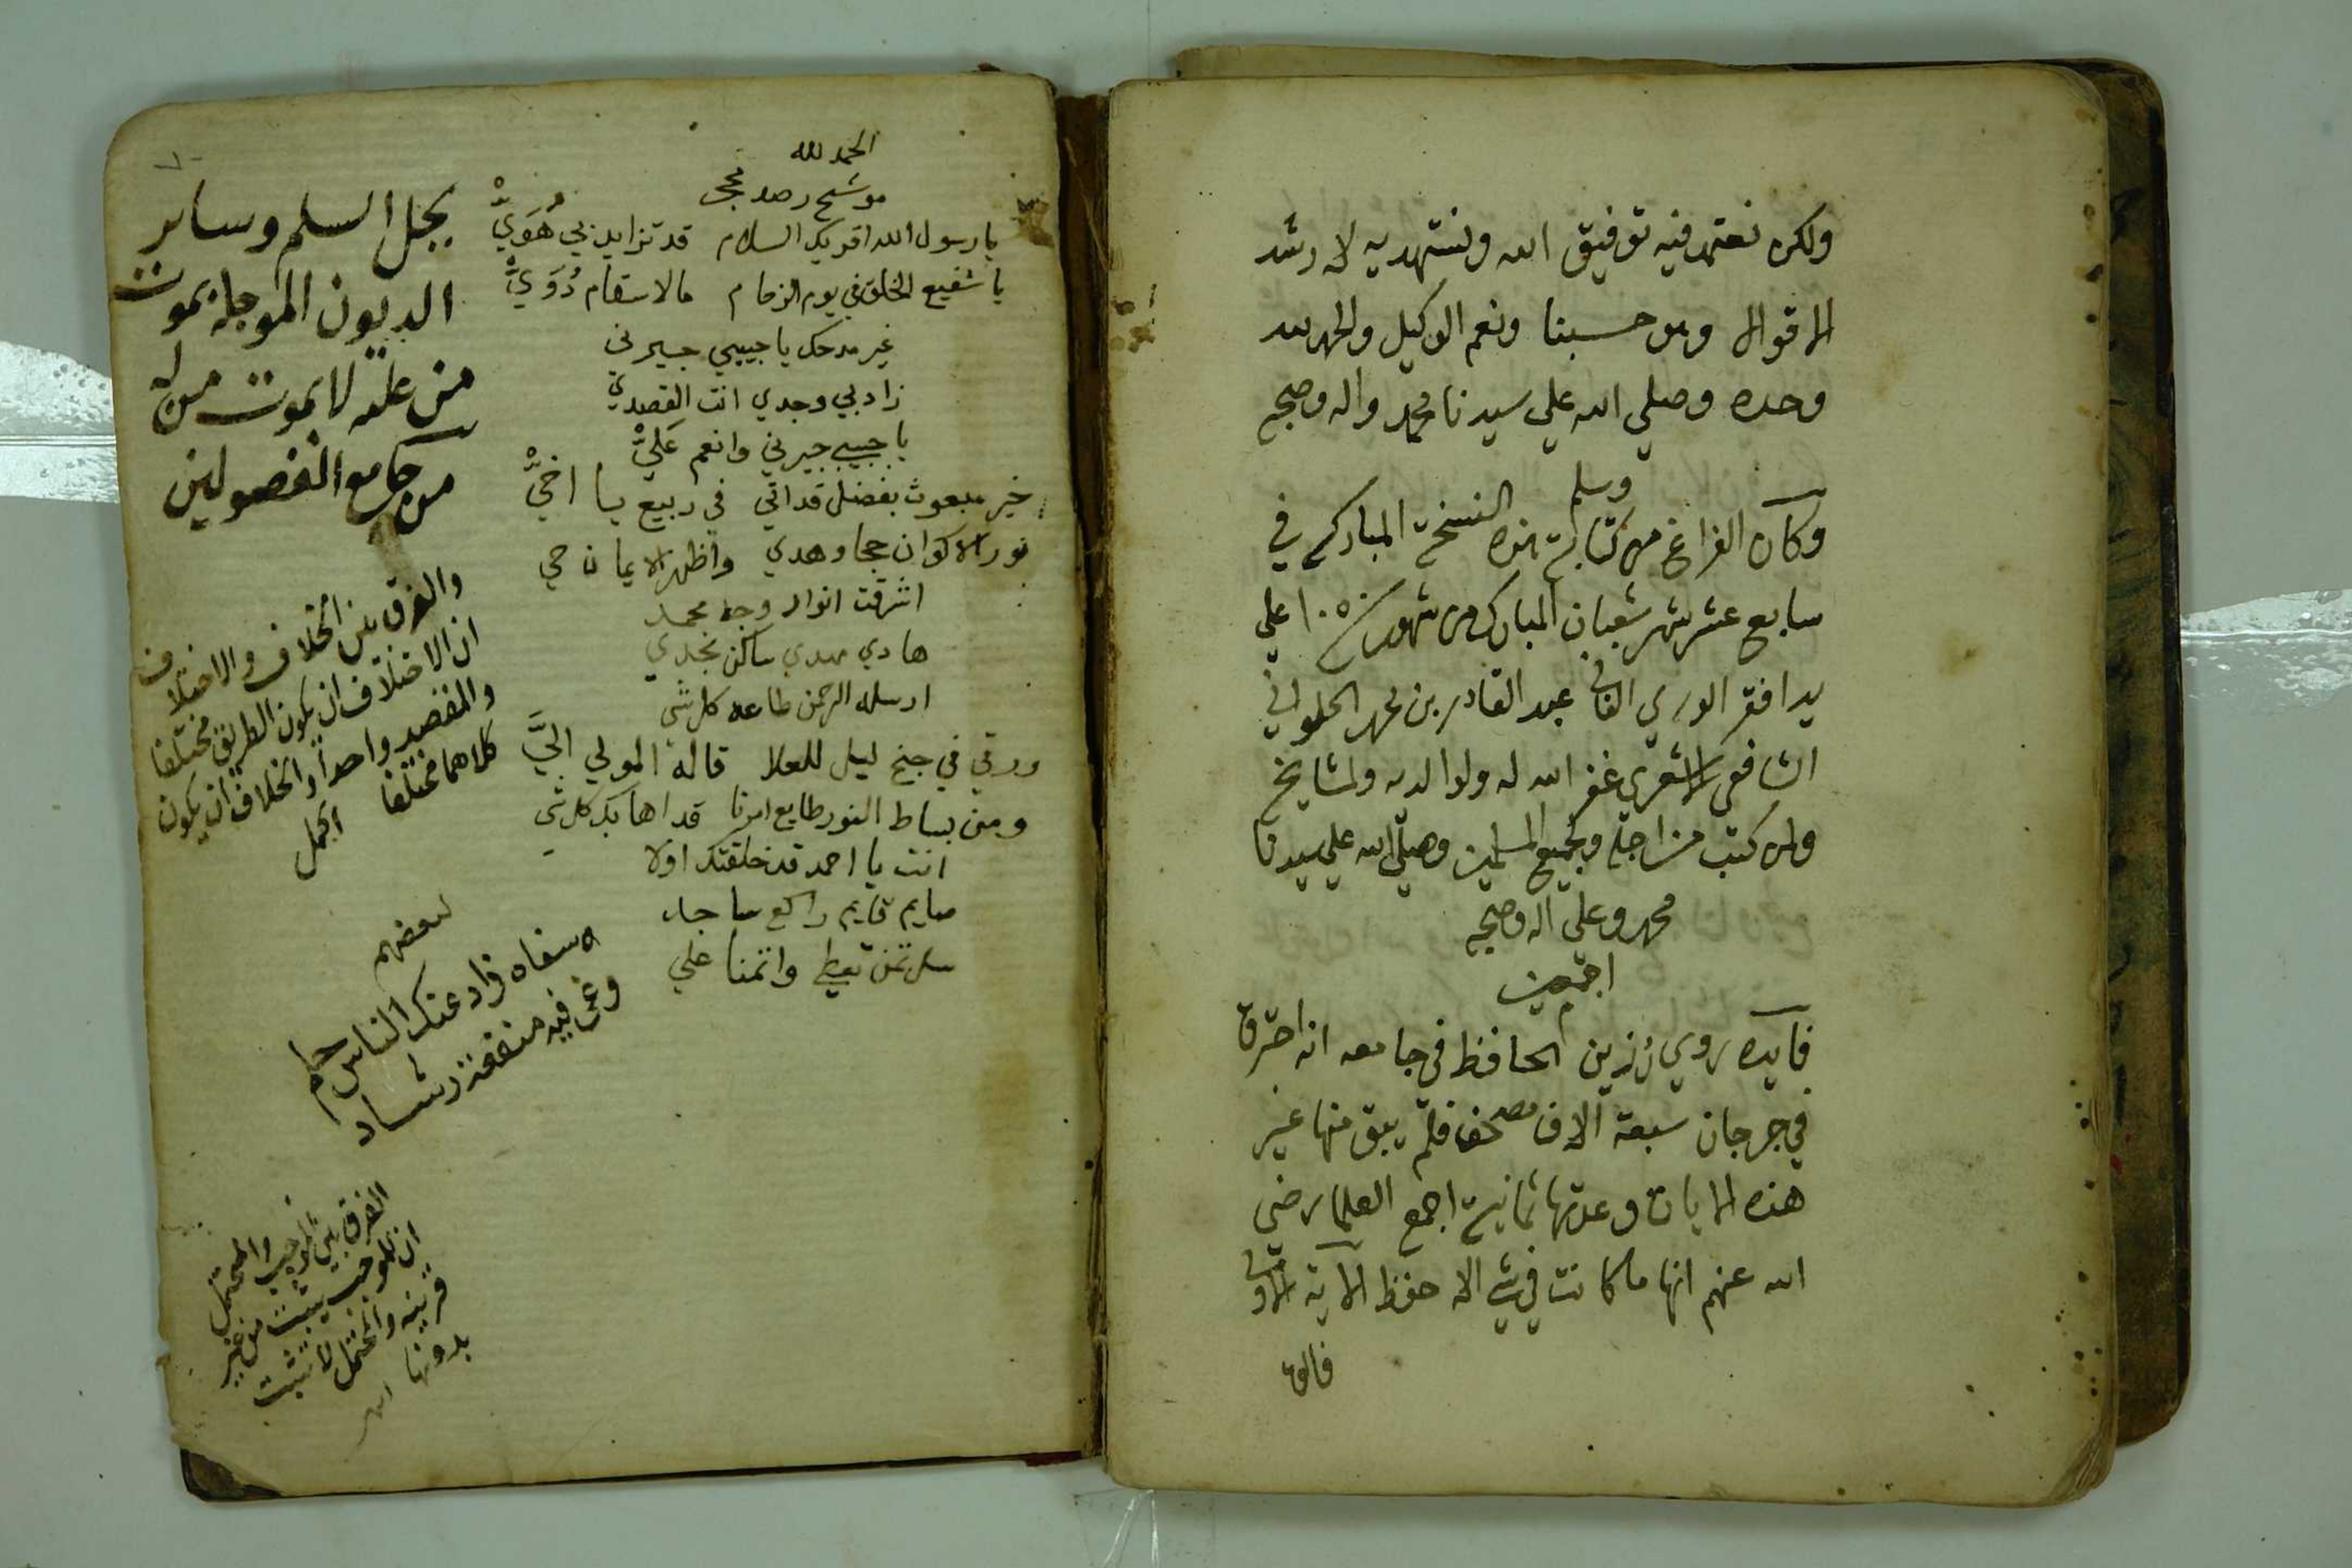 ولكن نعتمد فيه توفيق الله ونستهديه لا رشد
الاقوال وهو حسبنا ونعم الوكيل والحمد لله
وحده وصلي الله علي سيدنا محمد واله وصحبه
وسلم
وكان الفراغ من كتابة هذه النسخة المباركه في
سابع عشر شهر شعبان المبارك من شهور سنة ١٠٥٠ علي
يد افقر الوري الفاني عبد القادر بن محمد الحلواني
الشافعي الاشعري غفر الله له ولوالديه ولمشايخه
ولمن كتب من اجله ولجميع المسلمين وصلى الله علي سيدنا
محمد وعلى اله وصحبه
اجمعين
فايده روي رزين الحافظ في جامعه انه احترق
في جرجان سبعة الاف مصحف فلم يبق منها غير
هذه الايات وعدتها ثمانية اجمع العلما رضي
الله عنهم انها ما كانت في شي الا حفظ الاية الاولى
قالو
الحمد لله
موشح رصد
يا رسول الله اقريك السلام قد تزايد بي هُوَيّْ
يا شفيع الخلق في يوم الزحام ما لاسقام دُوَيّْ
غير مدحك يا حبيبي جيرني
زاد بي وجدي انت القصدي
يا حبيبي جيرني وانعم عَلَيّْ
خير مبعوث بفضل قد اتي في ربيع يا اخيّْ
نور الاكوان حجا وهدي واظهر الايمان حي
اشرقت انوار وجه محمد
هادي مهدي ساكن نجدي
ارسله الرحمن طاعه كل شي
ورقي في جنح ليل للعلا قاله المولي اليَّ
ومن بساط النور طايع امرنا قد اهابك كل شي
انت يا احمد قد خلقتك اولا
صايم قايم راكع ساجد
سل تمن تعطي واتمنا علي
يحل السلم وساير
الديون المؤجلة بموت
من عليه لا بموت من له
من جامع الفصولين
والفرق بين الخلاف والاختلاف
ان الاختلاف ان يكون الطريق مختلفا
والمقصد واحدا والخلاف ان يكون
كلاهما مختلفا اكمل
لبعضهم
سفاه ذاد عنك الناس حلم
وغي فيه منفعة رشاد
الفرق بين الموجب والمحتمل
ان الموجب يثبت من غير
قرينه والمحتمل لا يثبت
بدونها اهـ